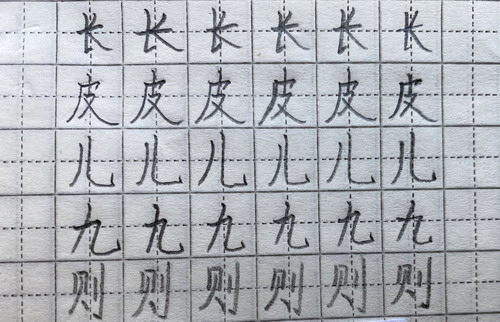 长长长长长长
皮皮皮皮皮皮
儿儿儿儿儿儿
九九九九九九
则则则则则则